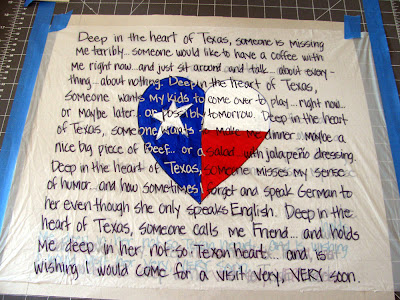 Deep in the heart of Texas, someone is missing
me terribly... someone would like to have a coffee with
me right now... and just sit around and talk... about every-
thing... about nothing. Deep in the heart of Texas,
someone wants my kids to come over to play... right now...
or maybe later or possibly tomorrow. Deep in the heart
of Texas, someone wants to make me dinner... maybe a
nice big piece of Beef... or a salad... with jalapeño dressing.
Deep in the heart of Texas, someone misses my sense
of humor... and how sometimes I forget and speak German to
her even though she only speaks English. Deep in the
heart of Texas, someone calls me Friend... and holds
me deep in her not-so-Texan heart... and, is
wishing I would come for a visit very, VERY soon.